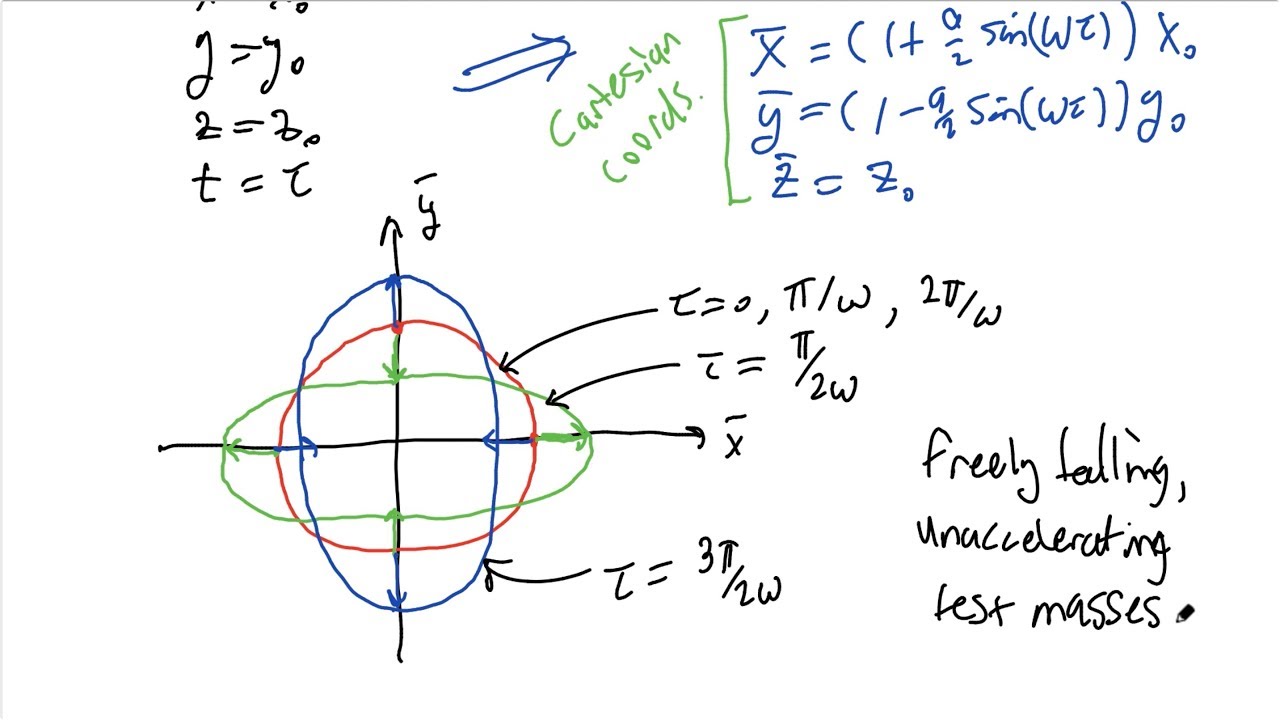 y = y₀
z = z₀
t = τ
Cartesian
coords.
x̄ = (1 + a/2 sin(ωτ)) x₀
ȳ = (1 − a/2 sin(ωτ)) y₀
z̄ = z₀
ȳ
τ = 0, π/ω, 2π/ω
τ = π/2ω
x̄
freely falling,
unaccelerating
test masses
τ = 3π/2ω